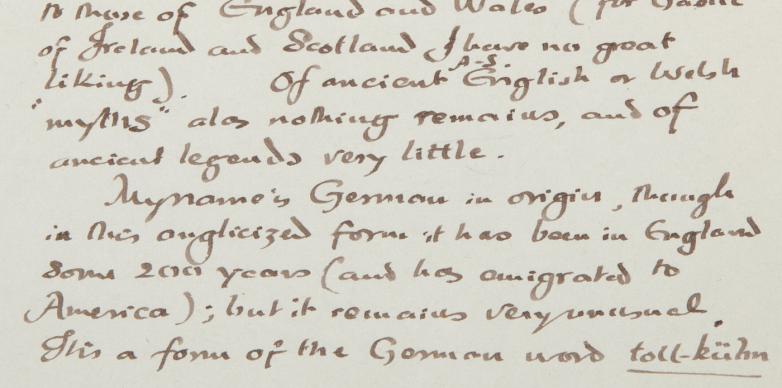 to those of England and Wales (for Gaelic
of Ireland and Scotland I have no great
liking). Of ancient A-S. English or Welsh
"myths" alas nothing remains, and of
ancient legends very little.
My name is German in origin, though
in this anglicized form it has been in England
some 200 years (and has emigrated to
America); but it remains very unusual.
It is a form of the German word toll-kühn